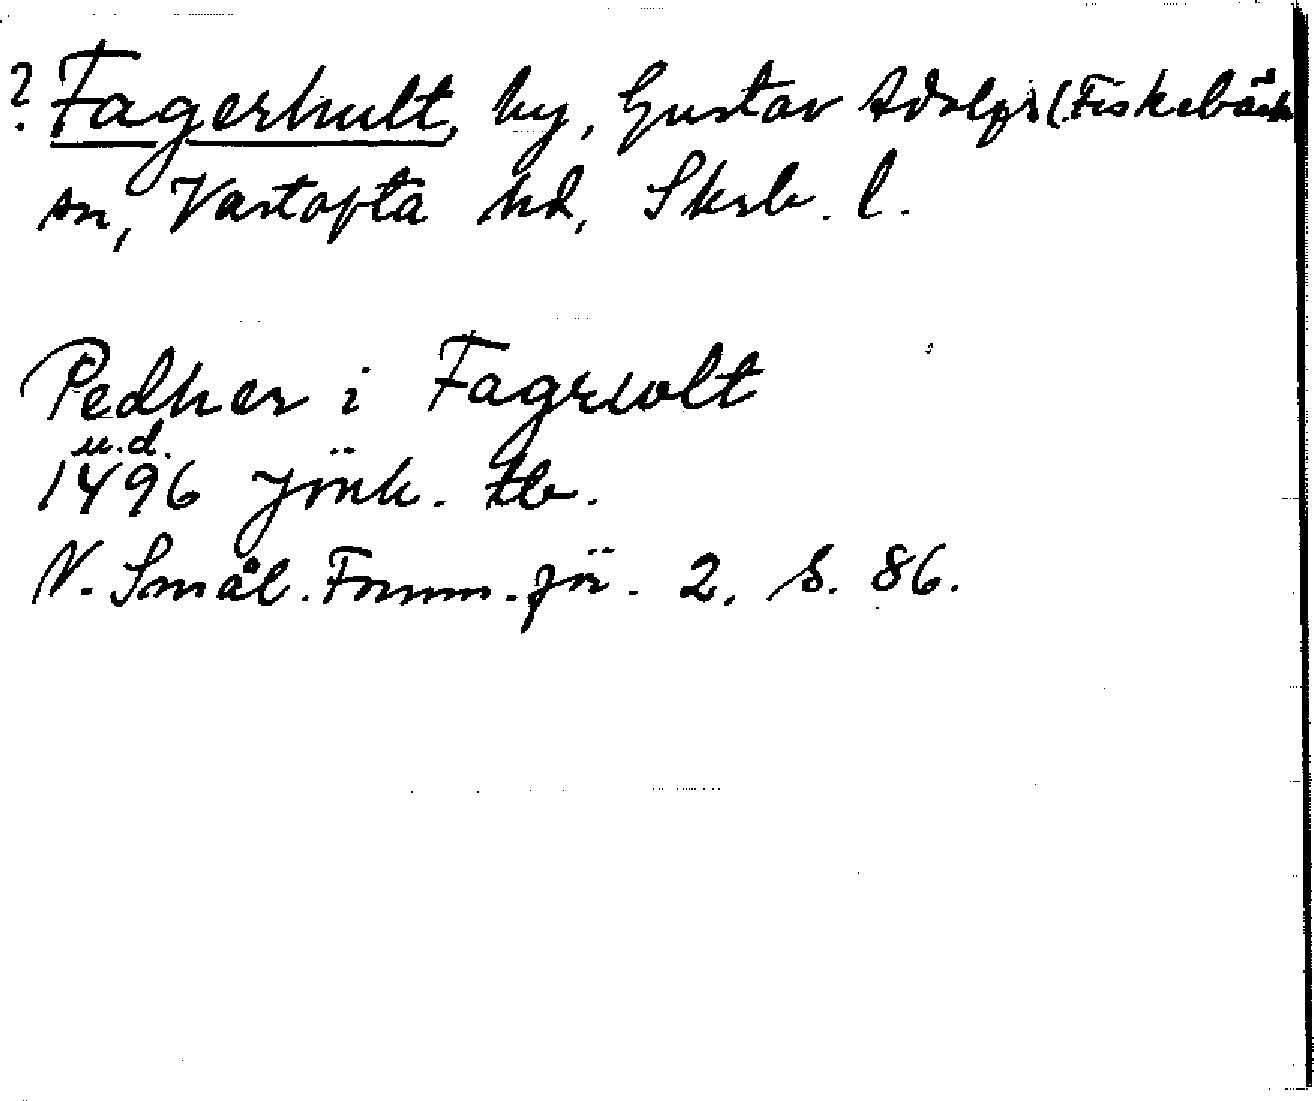 ? Fagerhult, by, Gustav Adolfs (Fiskebäck
sn, Vartofta hd, Skrb. l.
Pedher i Fagrwlt
u.d.
1496 Jönk. tb.
N. Smål. Fornm. för. 2, s. 86.